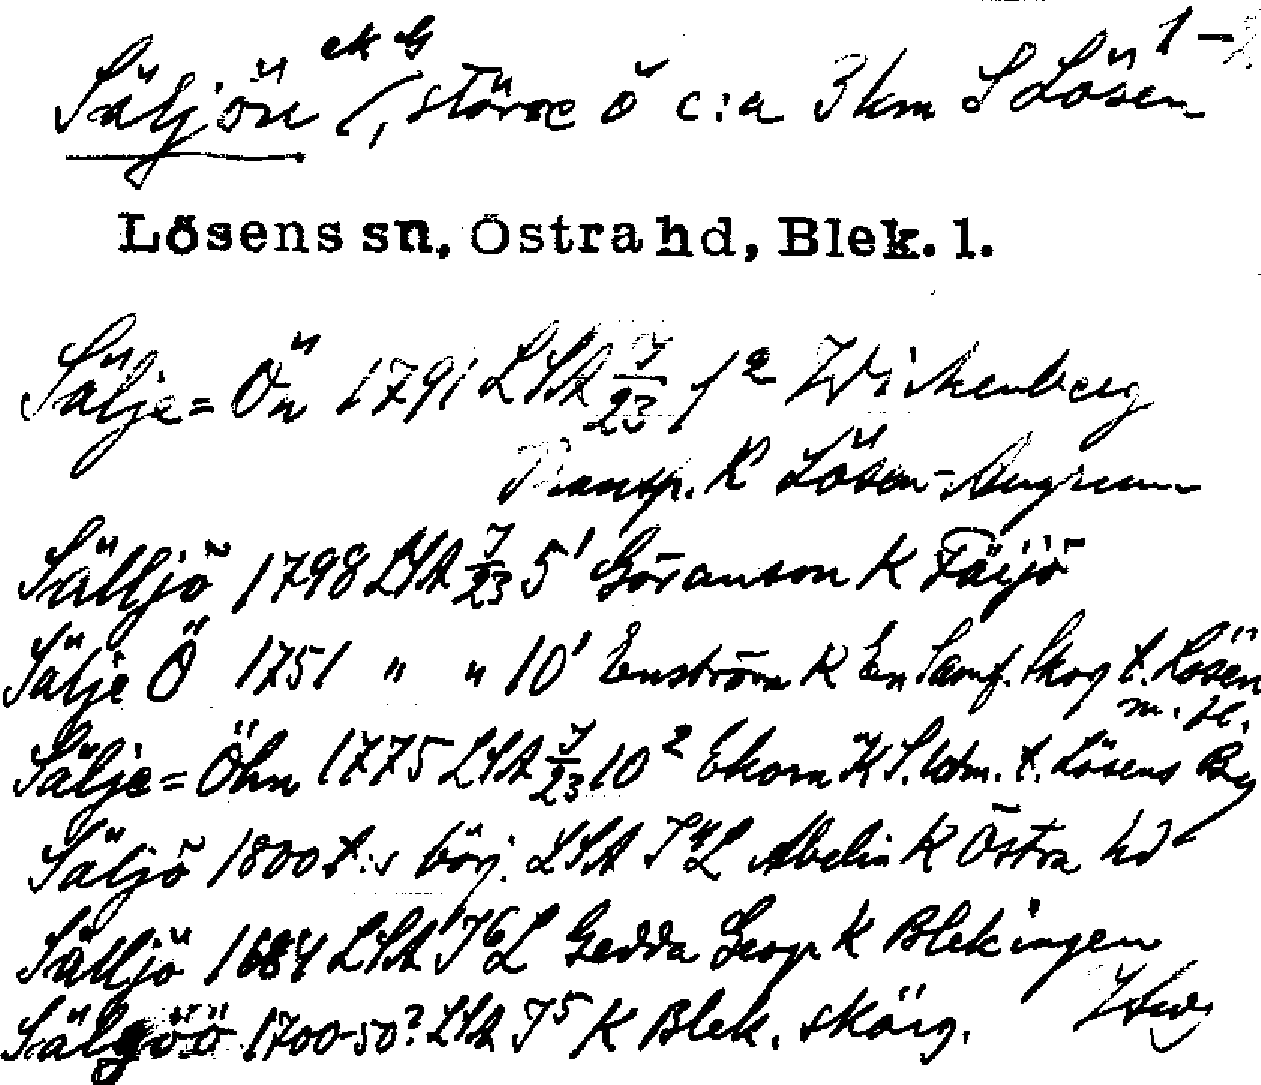 ek G 1-
Säljön (, större ö c:a 3 km S Lösen
Lösens sn, Östra hd, Blek. l.
Sälje=Ön 1791 LSA 7/23 1² Wickenberg
Transp. K Lösen-Augerum
Sälljö 1798 LSA 7/23 5¹ Göranson K Färjö
Sälje Ö 1751 " " 10¹ Enström K En Samf. Skog t. Lösen
m. fl.
Sälje=Öhn 1775 LSA 7/23 10² Ekorn K S. utm. t. Lösens By
Säljö 1800 t:s börj. LSA I L Abelin K Östra hd
Sälljö 1684 LSA I 6 L Gedda Geogr K Blekingen
Sälgöö 1700-50? LSA I 5 K Blek. skärg.